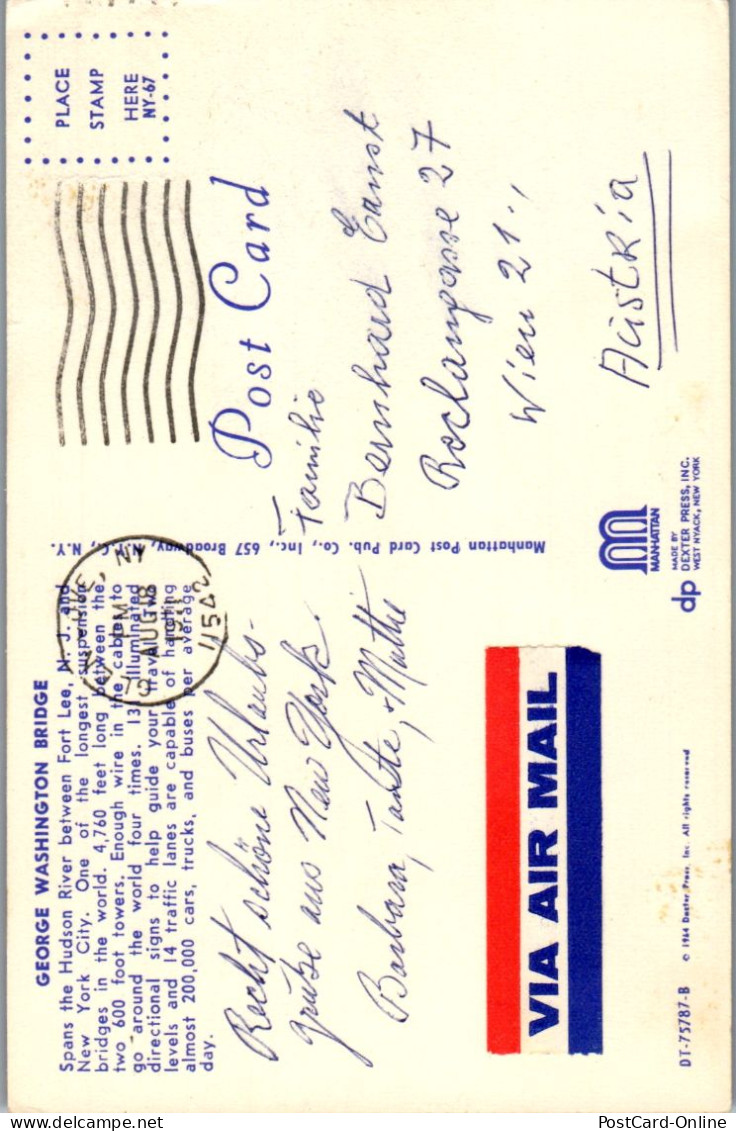 GEORGE WASHINGTON BRIDGE
Spans the Hudson River between Fort Lee, N. J. and
New York City. One of the longest suspension
bridges in the world. 4,760 feet long between the
two 600 foot towers. Enough wire in the cables to
go around the world four times. 13 illuminated
directional signs to help guide your travel. Two
levels and 14 traffic lanes are capable of handling
almost 200,000 cars, trucks, and buses per average
day.
Recht schöne Urlaubs-
grüße aus New York.
Barbara, Tante, + Mutti
VIA AIR MAIL
DT-75787-B
© 1964 Dexter Press, Inc. All rights reserved
Manhattan Post Card Pub. Co., Inc., 657 Broadway, N.Y.C., N.Y.
NY
AUG 18
11542
PLACE
STAMP
HERE
NY-67
Post Card
Familie
Bernhard Ernst
Wien 21.,
Austria
MANHATTAN
dp
MADE BY
DEXTER PRESS, INC.
WEST NYACK, NEW YORK
PostCard-Online